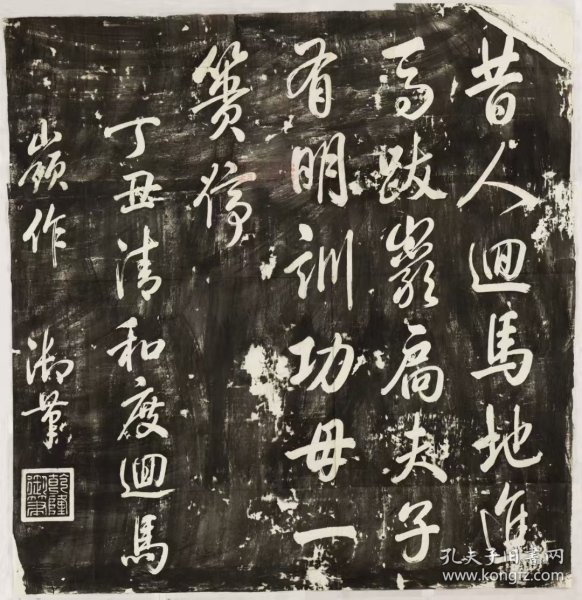 昔人迴馬地進
馬跋巖扃夫子
有明訓功毋一
簣停
丁丑清和度迴馬
嶺作
御筆
乾隆御筆
孔夫子旧書网
www.kongfz.com